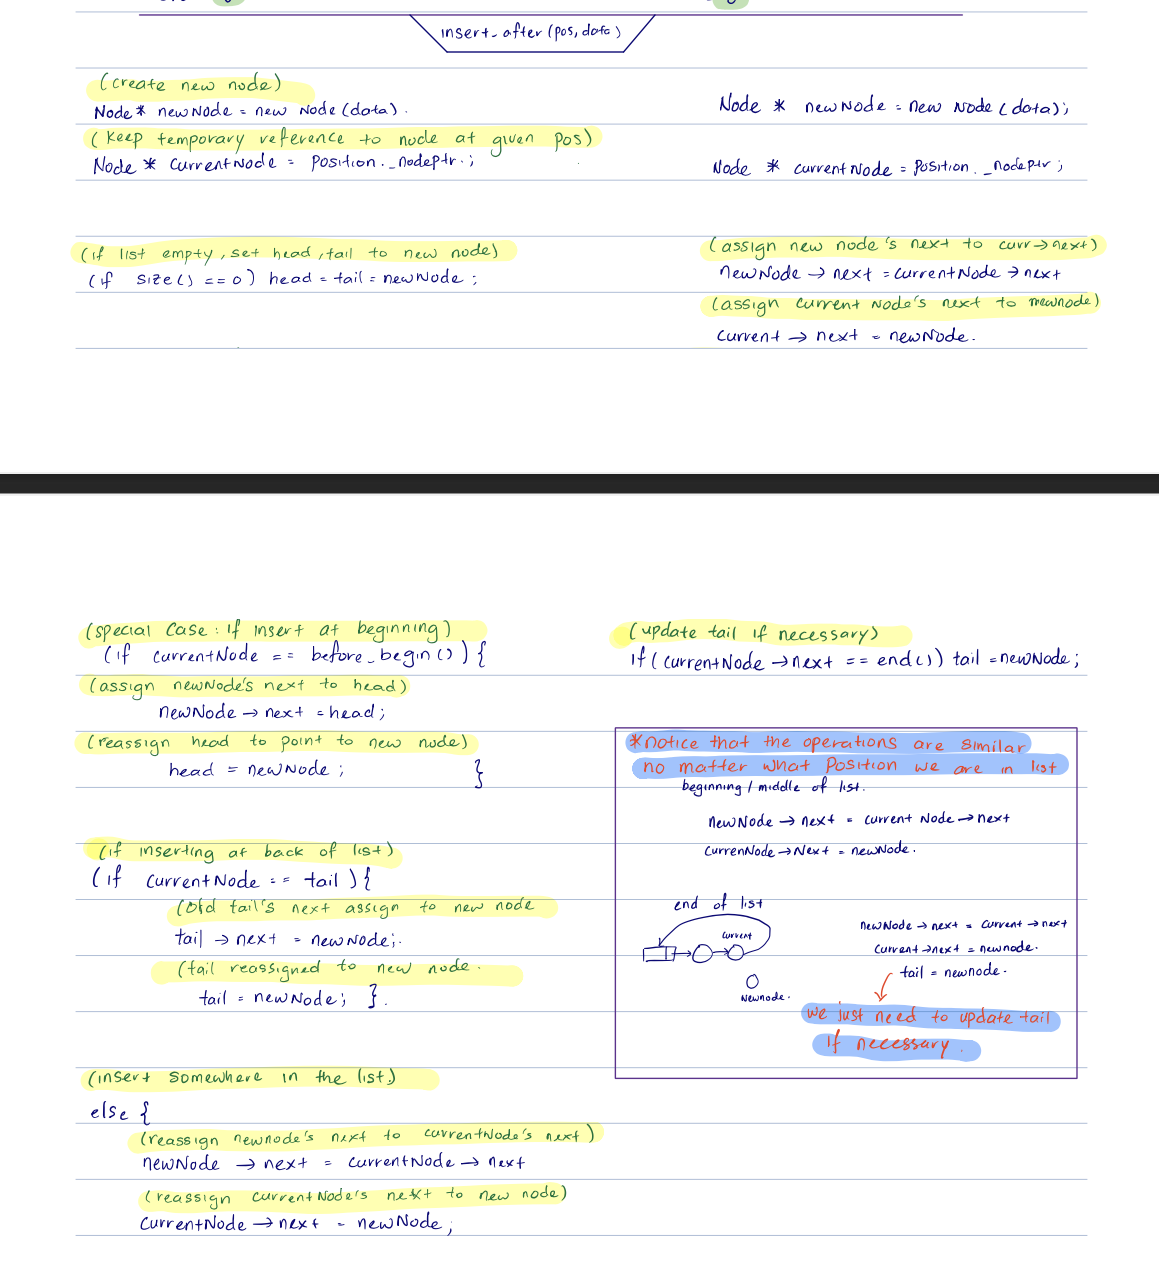 insert_after(pos, data)
(create new node)
Node* newNode = new Node(data).
(keep temporary reference to node at given pos)
Node * currentNode = position._nodeptr.;
(if list empty, set head, tail to new node)
(if size() == 0) head = tail = newNode;
Node * newNode = new Node(data);
Node * currentNode = position._nodeptr;
(assign new node's next to curr→next)
newNode → next = currentNode → next
(assign current Node's next to newnode)
current → next = newNode.
(special case: if insert at beginning)
(if currentNode == before_begin()) {
(assign newNode's next to head)
newNode → next = head;
(reassign head to point to new node)
head = newNode; }
(if inserting at back of list)
(if currentNode == tail) {
(old tail's next assign to new node
tail → next = newNode;.
(tail reassigned to new node.
tail = newNode; }.
(insert somewhere in the list)
else {
(reassign newnode's next to currentNode's next)
newNode → next = currentNode → next
(reassign currentNode's next to new node)
currentNode → next = newNode;
(update tail if necessary)
if (currentNode → next == end()) tail = newNode;
*notice that the operations are similar
no matter what position we are in list
beginning / middle of list.
newNode → next = current Node → next
currenNode → Next = newNode.
end of list
current
Newnode.
newNode → next = current → next
current → next = newnode.
tail = newnode.
we just need to update tail
if necessary.